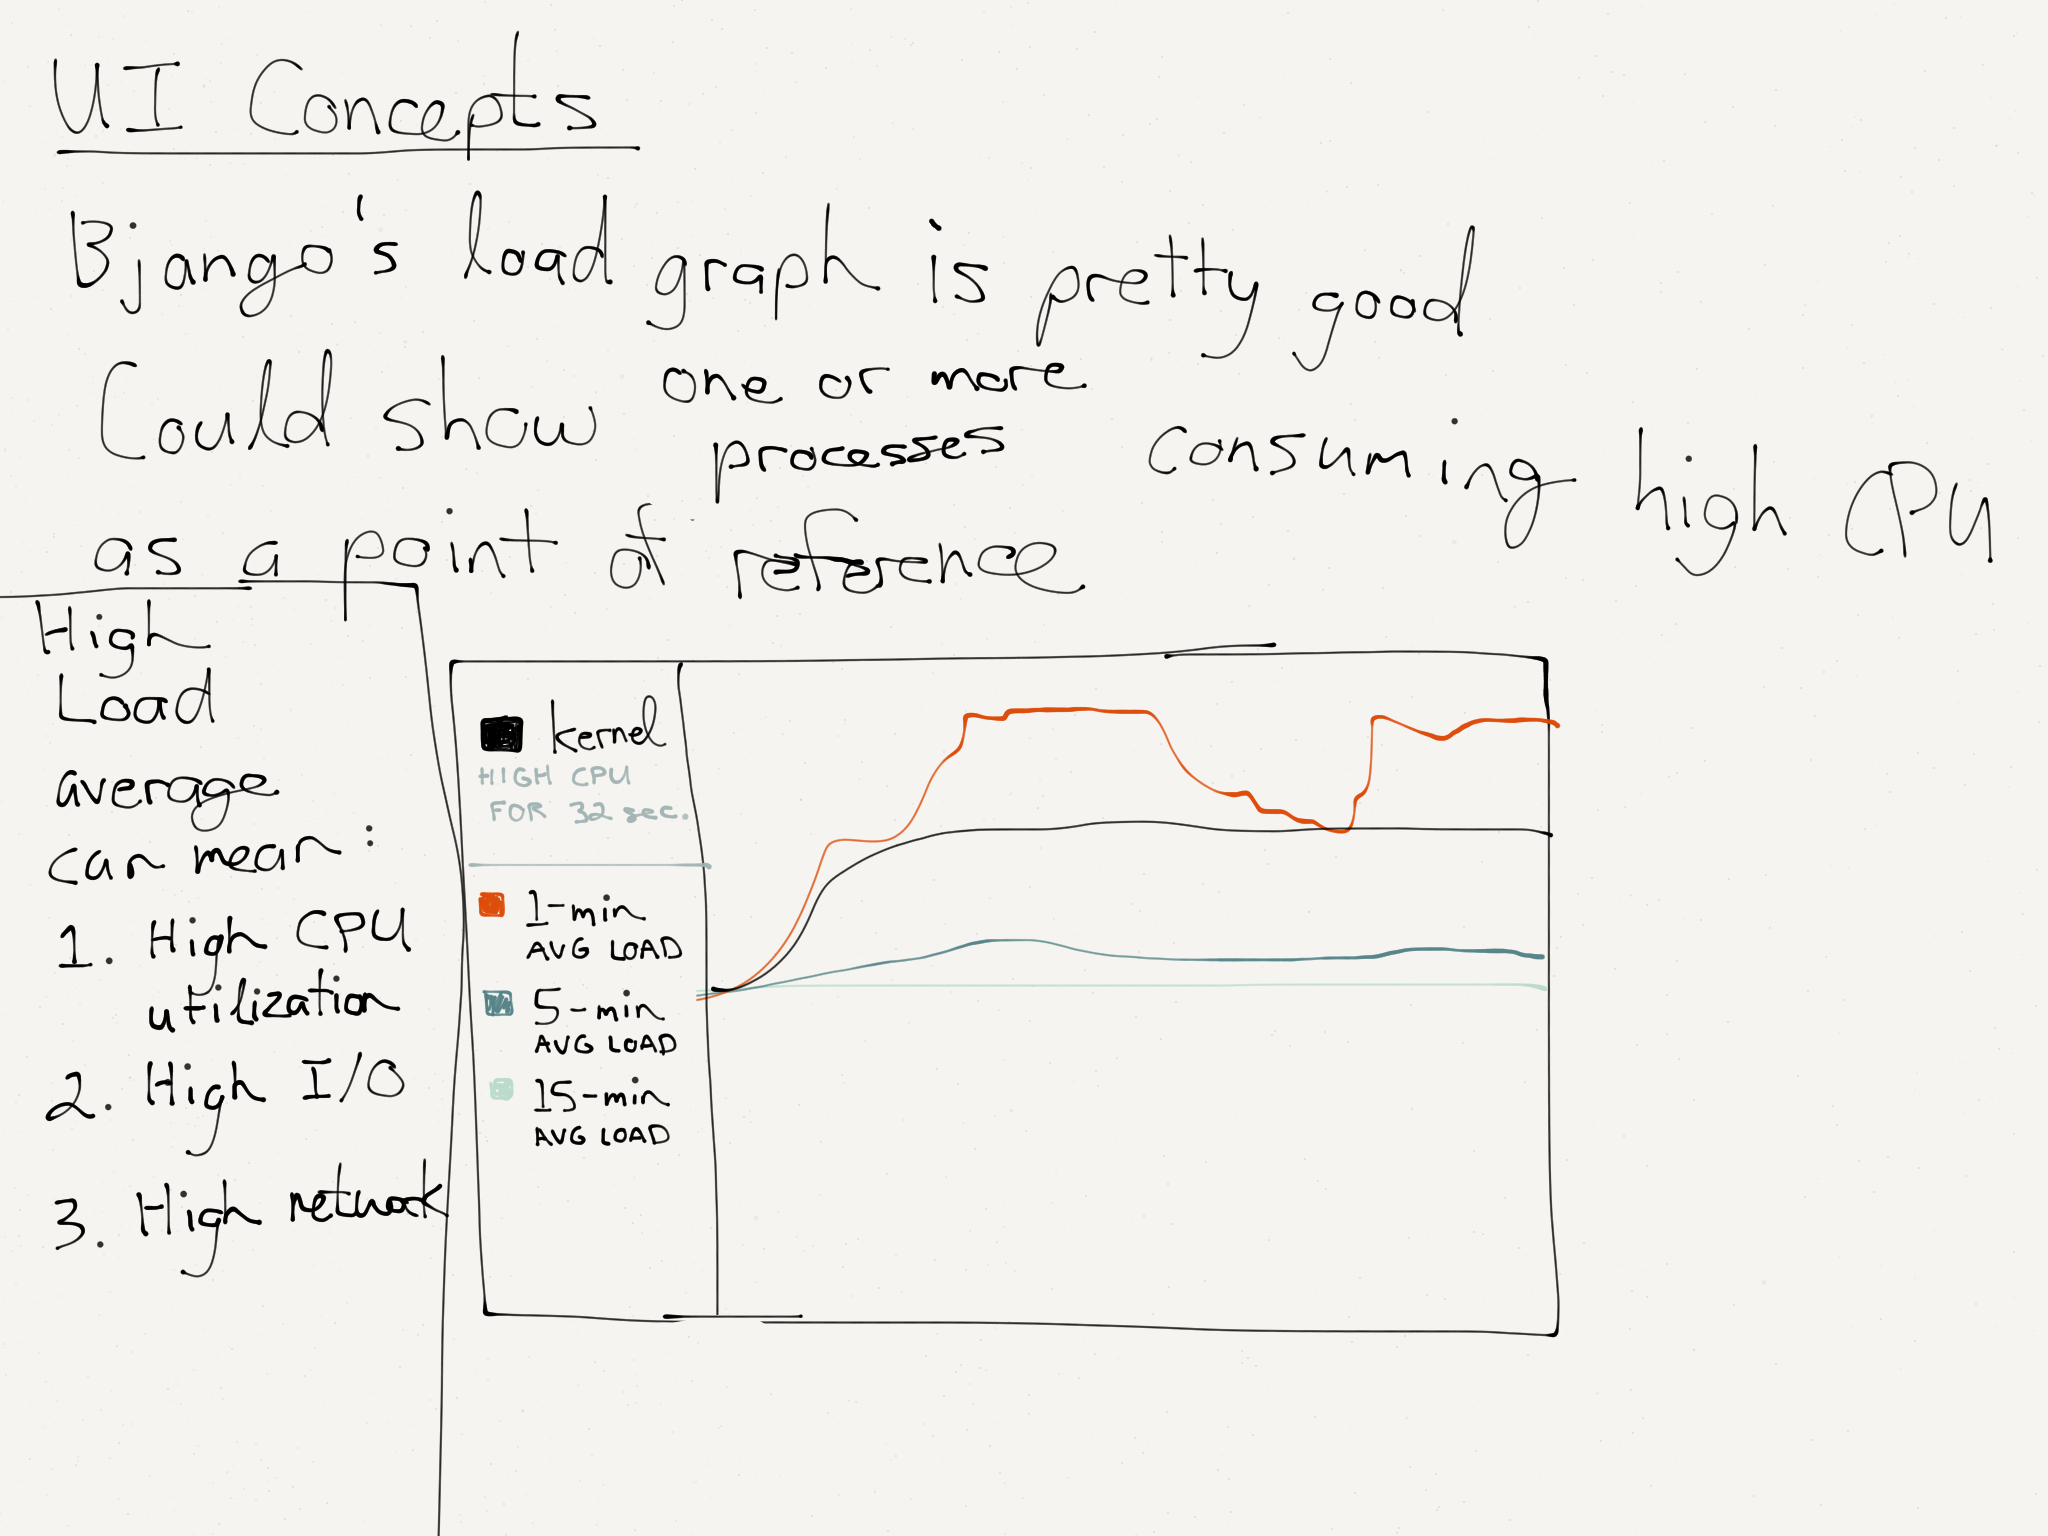 UI Concepts
Bjango's load graph is pretty good
Could show one or more processes consuming high CPU
as a point of reference
High
Load
average
can mean:
1. High CPU
utilization
2. High I/O
3. High network
kernel
HIGH CPU
FOR 32 sec.
1-min
AVG LOAD
5-min
AVG LOAD
15-min
AVG LOAD